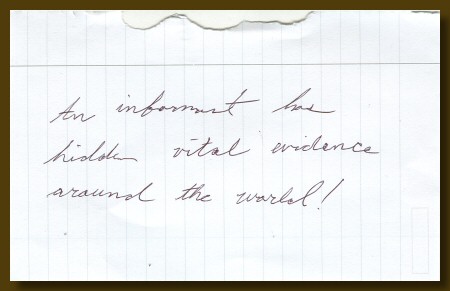 An informant has
hidden vital evidence
around the world!